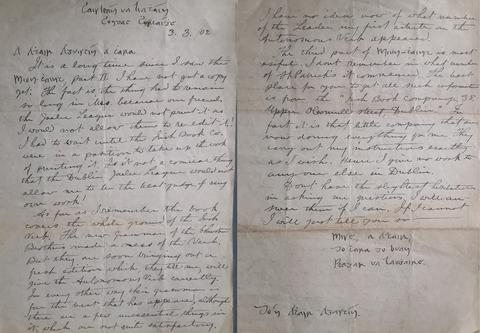 Caisleán ua Liatáin
Conndae Corcaiġe
3. 3. 02
A Aṫair Aguistín, a ċara
It is a long time since I saw the
Mion-ċaint, part II. I have not got a copy
yet. The fact is, the thing had to remain
so long in Mss. because our friends,
the Gaelic League would not print it as
I would not allow them to re-edit it!
I had to wait until the Irish Book Co.
were in a position to take up the work
of printing it. Is it not a comical thing
that the Dublin Gaelic League would not
allow me to be the best judge of my
own work!
As far as I remember the book
covers the whole ground of the Irish
Verb. The new grammar of the Christian
Brothers made a mess of the Verb.
But they are soon bringing out a
fresh edition which they tell me will
give the Autonomous Verb correctly.
In every other way their grammar is
far the best that has appeared, although
there are a few unessential things in
it which are not quite satisfactory.
I have no idea now of what number
of the Leader my first article on the
Autonomous Verb appeared.
The third part of Mion-ċaint is most
useful. I don't remember in what number
of the it commences. The best
place for you to get all such information
is from the "Irish Book Company, 38
Upper O'Connell Street, Dublin". In
fact it is that little company that are
now doing everything for me. They
carry out my instructions exactly
as I wish. Hence I give no work to
any one else in Dublin.
Don't have the slightest hesitation
in asking me questions. I will an-
swer them if I can. If I cannot
I will just tell you so.
Mise, a Aṫair,
do ċara go buan
Peadar ua Laoġaire.
Do'n Aṫair Aguistín.